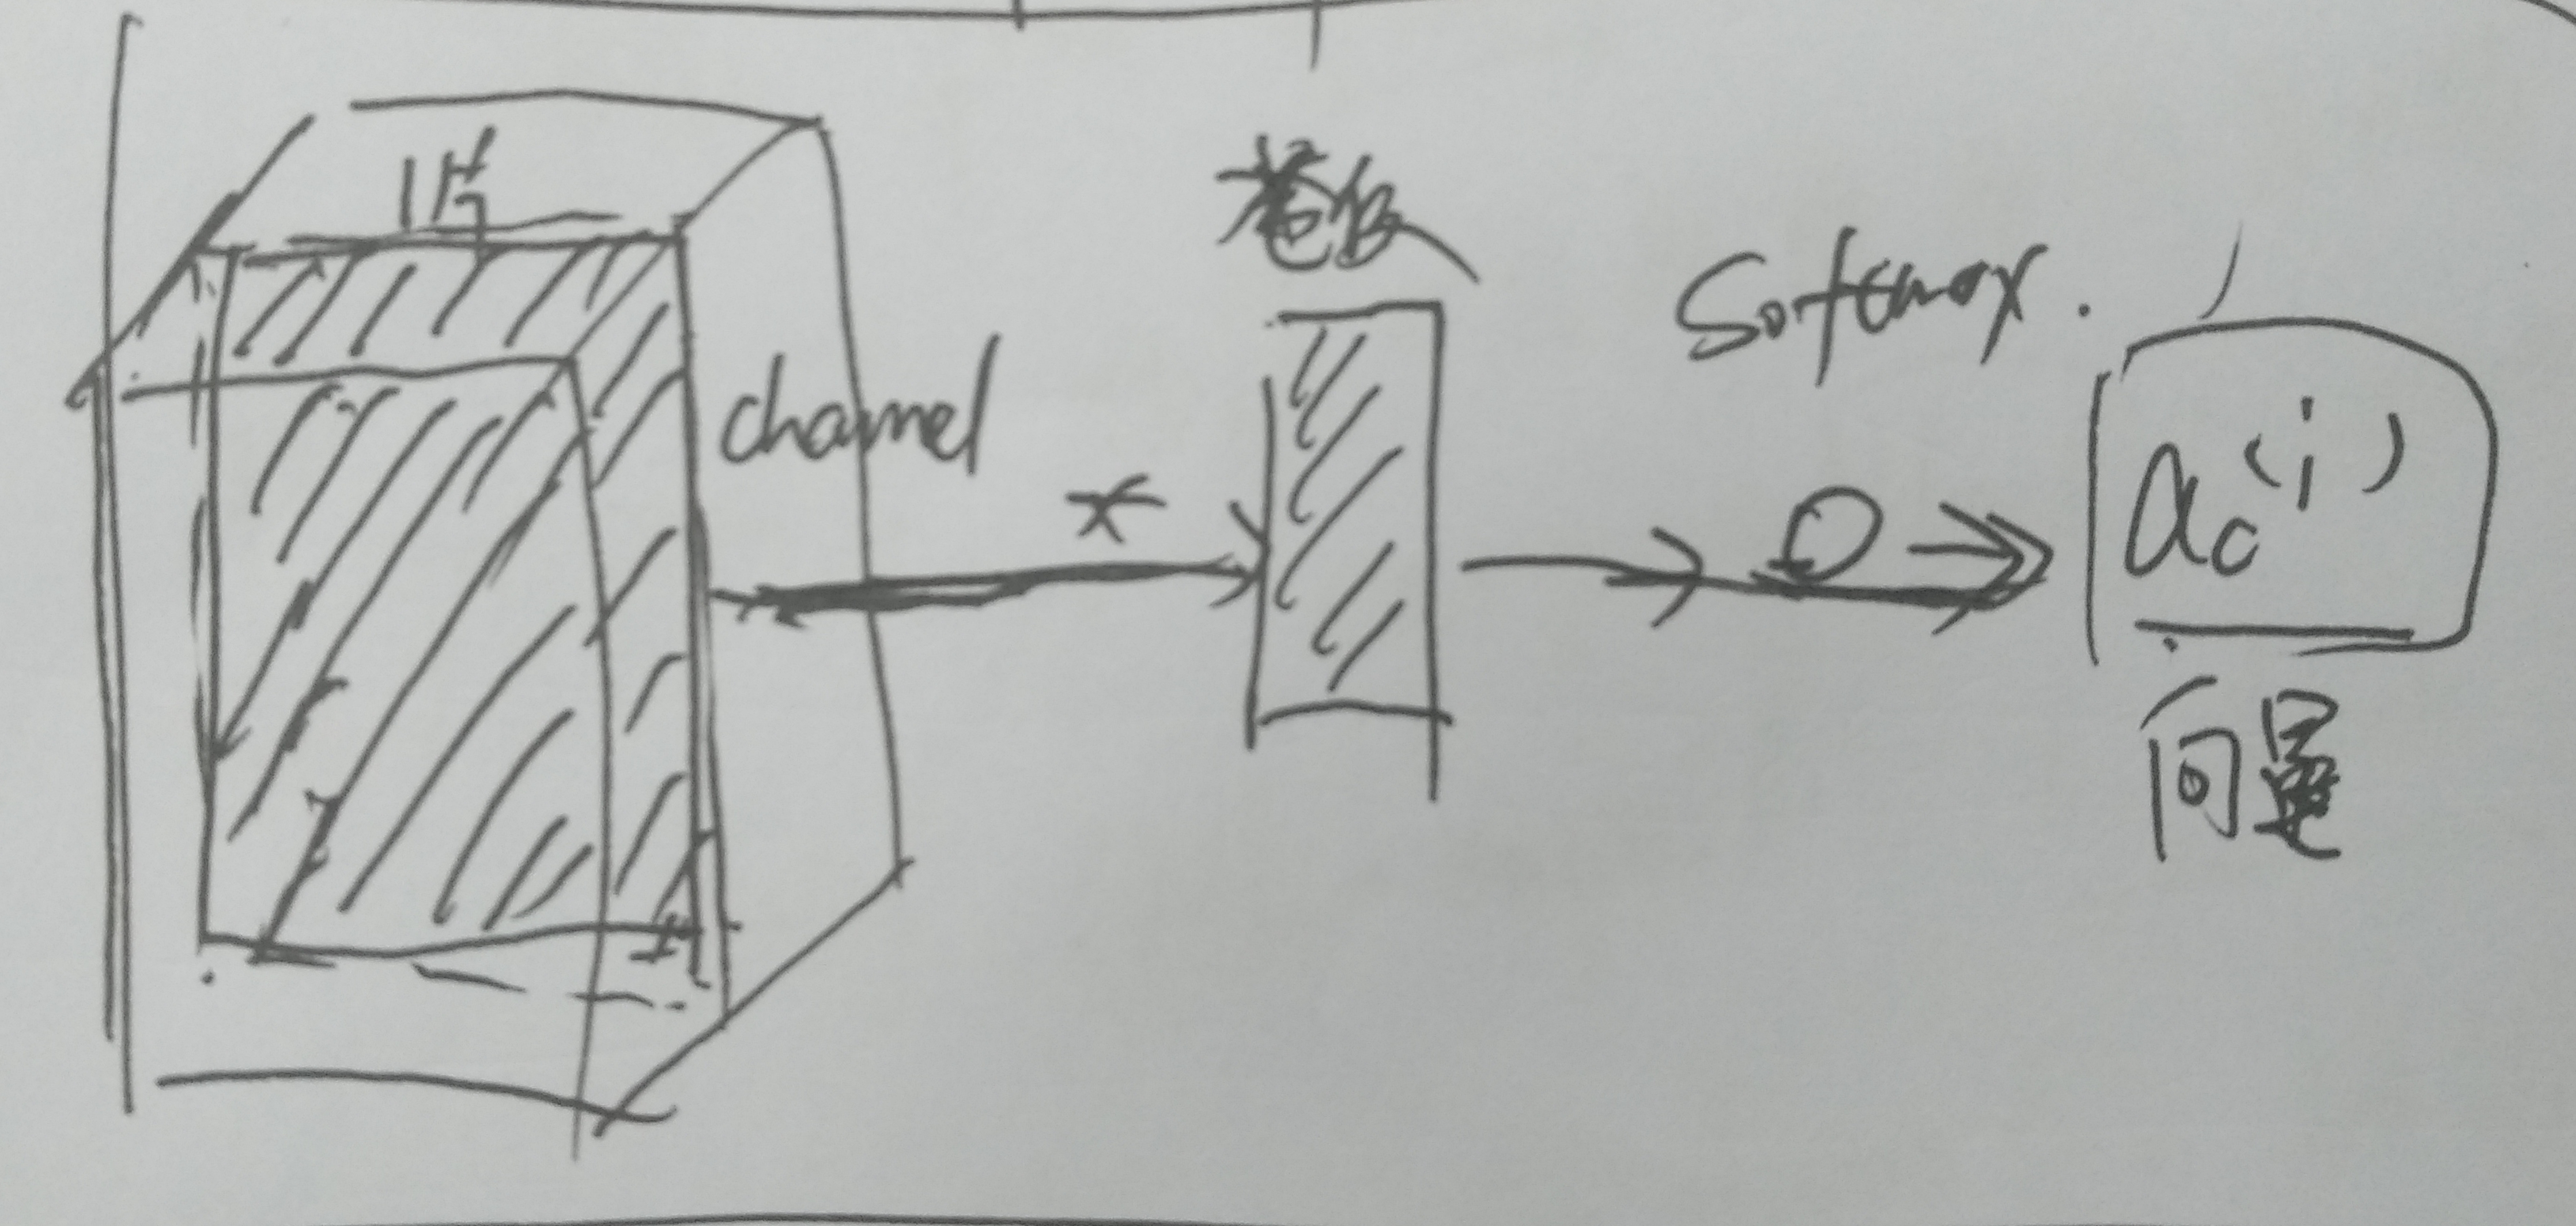 1片
channel
*
Softmax.
ac(i)
向量